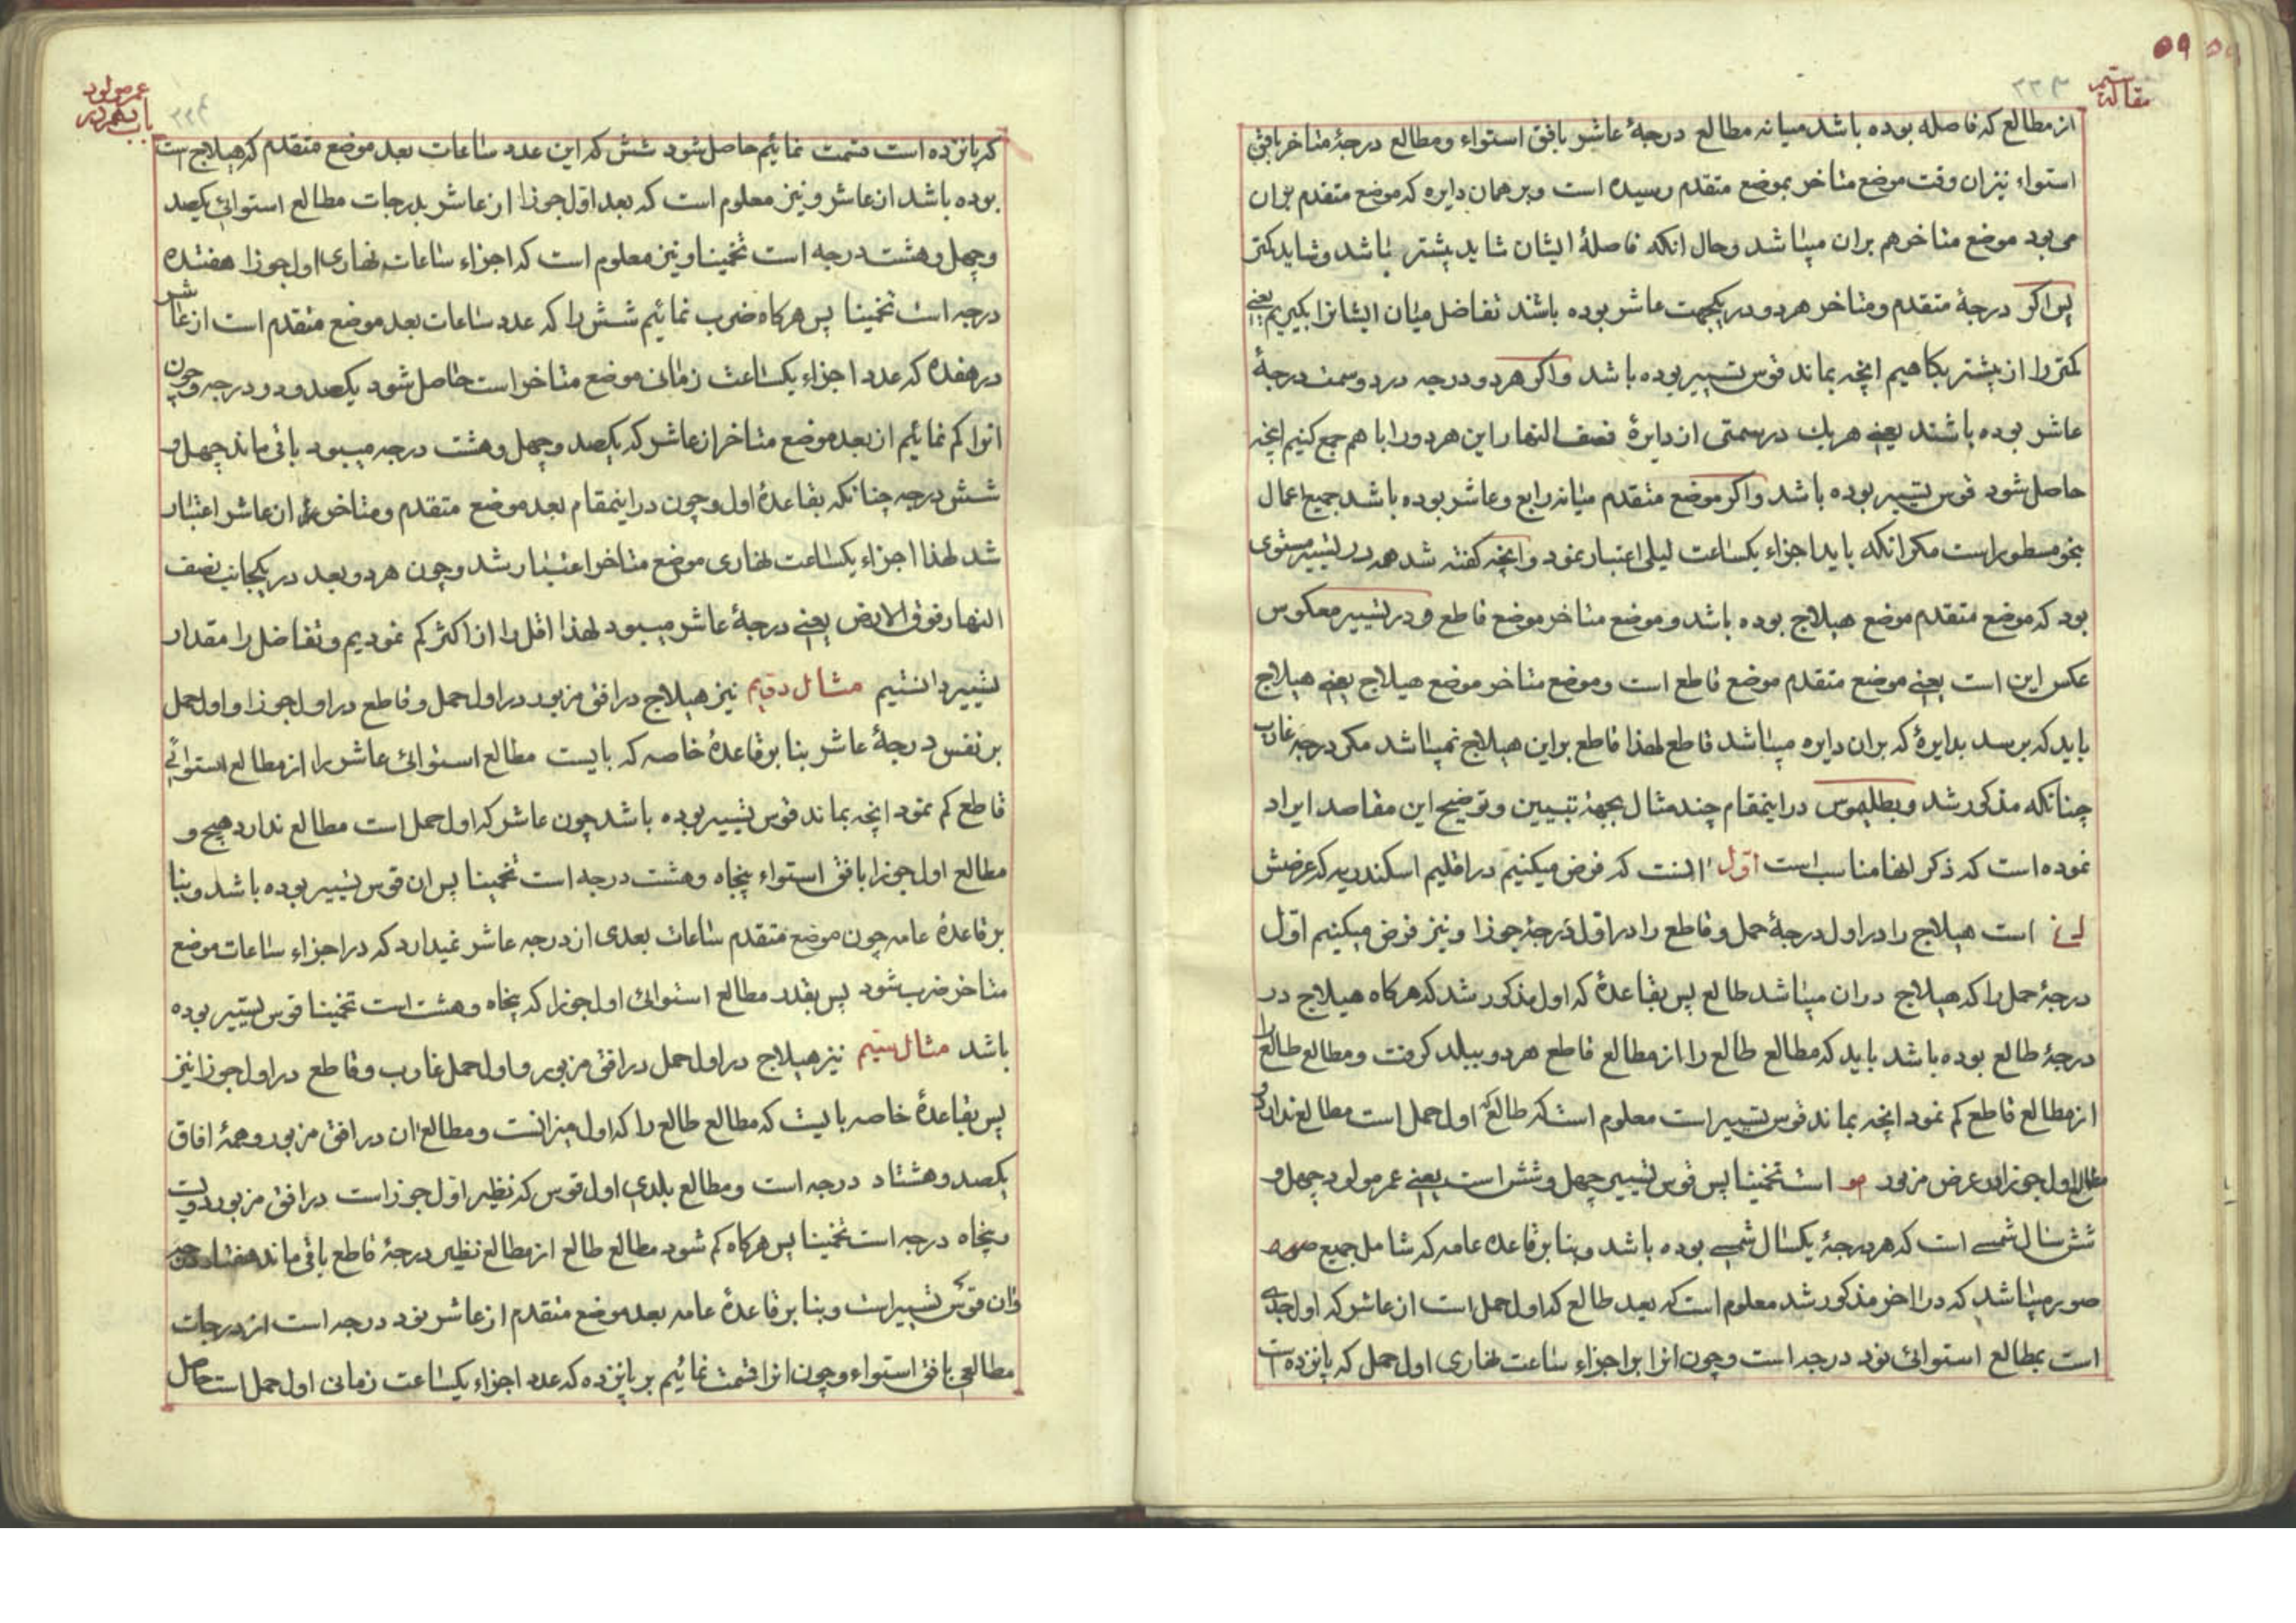 ۵۹
۲۲۳
مقاله سیم
از مطالع که فاصله بوده باشد میانه مطالع درجهٔ عاشر بافق استواء و مطالع درجهٔ متاخر بافق
استواء نیز ان وقت موضع متاخر بموضع متقدم رسیده است و بر همان دایره که موضع متقدم بران
می بود موضع متاخر هم بران میباشد و حال انکه فاصلهٔ ایشان شاید بیشتر باشد و شاید کمتر
پس اکر درجهٔ متقدم و متاخر هر دو در یکجهت عاشر بوده باشند تفاضل میان ایشانرا بکیریم یعنی
کمتر را از بیشتر بکاهیم انچه بماند قوس تسییر بوده باشد و اکر هر دو درجه در دو سمت درجهٔ
عاشر بوده باشند یعنی هر یك در سمتی از دایرهٔ نصف النهار این هر دو را با هم جمع کنیم انچه
حاصل شود قوس تسییر بوده باشد و اکر موضع متقدم میانه رابع و عاشر بوده باشد جمیع اعمال
بنحو مسطور است مکر انکه باید اجزاء یکساعت لیلی اعتبار نمود و انچه کفته شد همه در تسییر مستوی
بود که موضع متقدم موضع هیلاج بوده باشد و موضع متاخر موضع قاطع و در تسییر معکوس
عکس این است یعنی موضع متقدم موضع قاطع است و موضع متاخر موضع هیلاج یعنی هیلاج
باید که برسد بدایرهٔ که بران دایره میباشد قاطع لهذا قاطع بر این هیلاج نمیباشد مکر درجه غارب
چنانکه مذکور شد و بطلمیوس در اینمقام چند مثال بجهة تبیین و توضیح این مقاصد ایراد
نموده است که ذکر انها مناسب است اول انست که فرض میکنیم در اقلیم اسکندریه که عرضش
است هیلاج را در اول درجهٔ حمل و قاطع را در اول درجهٔ جوزا و نیز فرض میکنیم اول
درجهٔ حمل را که هیلاج در ان میباشد طالع پس بقاعدهٔ که اول مذکور شد که هرکاه هیلاج در
درجهٔ طالع بوده باشد باید که مطالع طالع را از مطالع قاطع هر دو ببلد کرفت و مطالع طالع را
از مطالع قاطع کم نمود انچه بماند قوس تسییر است معلوم است که طالع که اول حمل است مطالع ندارد و
مطالع اول جوزا در عرض مزبور مو است تخمینا پس قوس تسییر چهل و شش است یعنی عمر مولود چهل و
شش سال شمسی است که هر درجهٔ یکسال شمسی بوده باشد و بنا بر قاعده عامه که شامل جمیع
صور میباشد که در اخر مذکور شد معلوم است که بعد طالع که اول حمل است از عاشر که اول جدی
است بمطالع استوائی نود درجه است و چون انرا بر اجزاء ساعت نهاری اول حمل که پانزده است
۲۲۴
عمر مولود
که پانزده است قسمت نمائیم حاصل شود شش که این عدد ساعات بعد موضع متقدم که هیلاج است
بوده باشد از عاشر و نیز معلوم است که بعد اول جوزا از عاشر بدرجات مطالع استوائی یکصد
و چهل و هشت درجه است تخمینا و نیز معلوم است که اجزاء ساعات نهاری اول جوزا هفتده
درجه است تخمینا پس هرکاه ضرب نمائیم شش را که عدد ساعات بعد موضع متقدم است از عاشر
در هفده که عدد اجزاء یکساعت زمانی موضع متاخر است حاصل شود یکصد و دو درجه و چون
انرا کم نمائیم از بعد موضع متاخر از عاشر که یکصد و چهل و هشت درجه میبود باقی ماند چهل و
شش درجه چنانکه بقاعدهٔ اول و چون در اینمقام بعد موضع متقدم و متاخر از عاشر اعتبار
شد لهذا اجزاء یکساعت نهاری موضع متاخر اعتبار شد و چون هر دو بعد در یکجانب نصف
النهار فوق الارض یعنی درجهٔ عاشر میبود لهذا اقل را از اکثر کم نمودیم و تفاضل را مقدار
تسییر دانستیم مثال دویم نیز هیلاج در افق مزبور در اول حمل و قاطع در اول جوزا و اول حمل
بر نفس درجهٔ عاشر بنا بر قاعدهٔ خاصه که بایست مطالع استوائی عاشر را از مطالع استوائی
قاطع کم نمود انچه بماند قوس تسییر بوده باشد چون عاشر که اول حمل است مطالع ندارد هیچ و
مطالع اول جوزا بافق استواء پنجاه و هشت درجه است تخمینا پس ان قوس تسییر بوده باشد و بنا
بر قاعدهٔ عامه چون موضع متقدم ساعات بعدی از درجه عاشر نمیدارد که در اجزاء ساعات موضع
متاخر ضرب شود پس بقدر مطالع استوائی اول جوزا که پنجاه و هشت است تخمینا قوس تسییر بوده
باشد مثال سیم نیز هیلاج در اول حمل در افق مزبور و اول حمل غارب و قاطع در اول جوزا نیز
پس بقاعدهٔ خاصه بایست که مطالع طالع را که اول میزانست و مطالع ان در افق مزبور و همهٔ افاق
یکصد و هشتاد درجه است و مطالع بلدی اول قوس که نظیر اول جوزاست در افق مزبور دویست
و پنجاه درجه است تخمینا پس هرکاه کم شود مطالع طالع از مطالع نظیر درجهٔ قاطع باقی ماند هفتاد درجه
و ان قوس تسییر است و بنا بر قاعدهٔ عامه بعد موضع متقدم از عاشر نود درجه است از درجات
مطالعی بافق استواء و چون انرا قسمت نمائیم بر پانزده که عدد اجزاء یکساعت زمانی اول حمل است حاصل